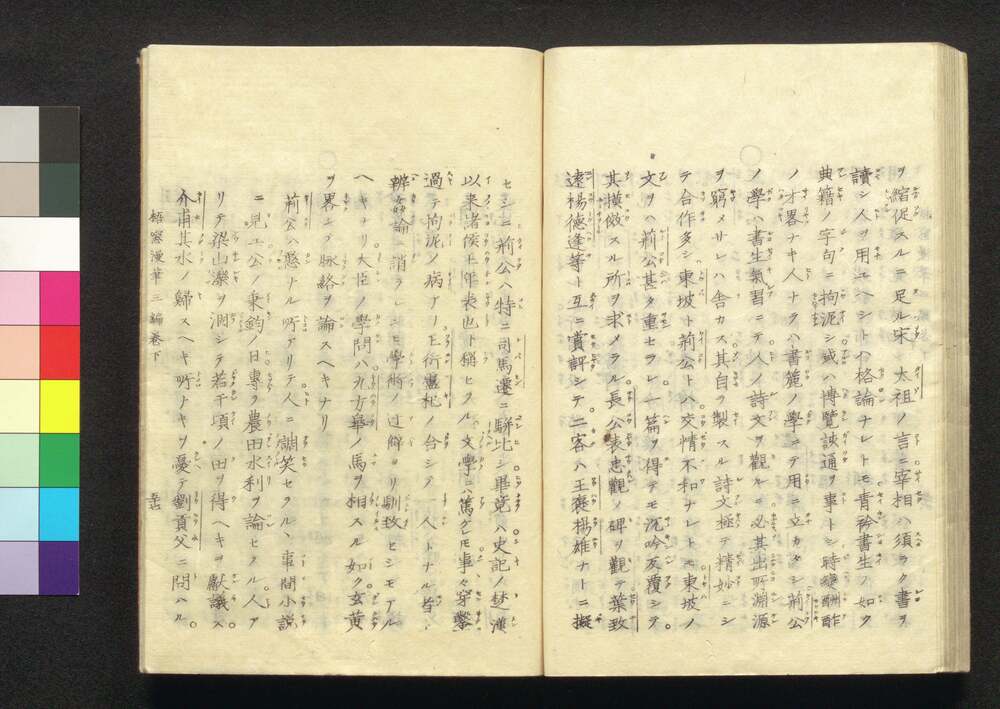 ヲ縮促スルニ足ル宋ノ太祖ノ言ニ宰相ハ須ラク書ヲ
讀シ人ヲ用ユヘシトハ格論ナレトモ青衿書生ノ如ク
典籍ノ字句ニ拘泥シ或ハ博覽誤通ヲ事トシ時變酬酢
ノ才畧ナキ人ナラハ書簏ノ學ニテ用ニ立カタシ荊公
ノ學ハ書生氣習ニテ人ノ詩文ヲ觀ルニ必其出所淵源
ヲ窮メサレハ舍カス其自ラ製スル詩文極テ精妙ニシ
テ合作多シ東坡ト荊公トハ交情不和ナレトモ東坡ノ
文ヲハ荊公甚タ重セラレ一篇ヲ得テモ沉吟反覆シテ
其摸倣スル所ヲ求メラル長公表忠觀ノ碑ヲ觀テ葉致
遠楊德逢等ト互ニ賞評シテ二客ハ王褒楊雄ナトニ擬
セシニ荊公ハ特ニ司馬遷ニ駢比シ畢竟ハ史記ノ楚漢
以来諸侯王年表也ト稱セラル文學ニハ篤ケレモ事々穿鑿
過テ拘泥ノ病アリ王衍盧杞ノ合シテ一人トナル皆
辨姦論ニ誚ラレシモ學術ノ辺僻ヨリ馴致セシモアル
ヘキナリ大臣ノ學問ハ九方皋ノ馬ヲ相スル如ク玄黄
ヲ畧エテ脉絡ヲ論スヘキナリ
荊公ハ愚ナル所アリテ人ニ謿笑セラル事間小説
ニ見エ公ノ秉鈞ノ日專ラ農田水利ヲ論セラル人ア
リテ梁山濼ヲ涸シテ若干頃ノ田ヲ得ヘキヲ獻議ス
介甫其水ノ歸スヘキ所ナキヲ憂テ劉貢父ニ問ハル
梧窓漫筆三編卷下